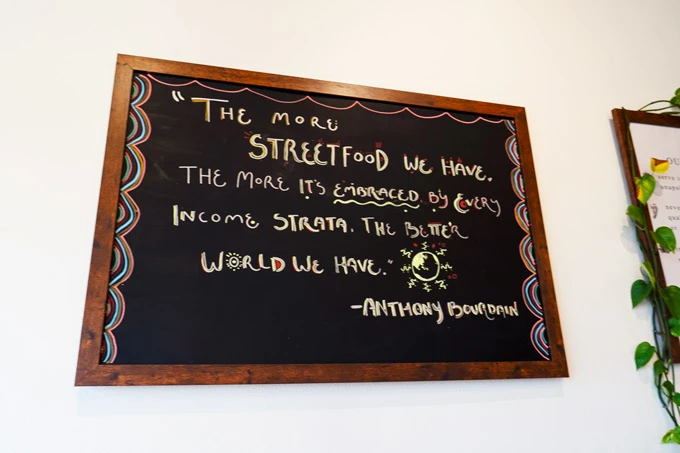 "THE MORE
STREETFOOD WE HAVE.
THE MORE IT'S EMBRACED BY EVERY
INCOME STRATA. THE BETTER
WORLD WE HAVE."
-ANTHONY BOURDAIN
OU
serve
never